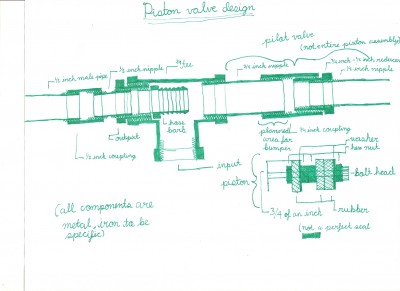 Piston valve design
pilot valve
(not entire piston assembly)
½ inch male pipe
½ inch nipple
¾ tee
¾ inch nipple
¾ inch - ½ inch reducer
½ inch nipple
output
hose
barb
½ inch coupling
planned
area for
bumper
¾ inch coupling
washer
hex nut
input
piston
bolt head
3/4 of an inch
rubber
(not a perfect seal)
(all components are
metal, iron to be
specific)